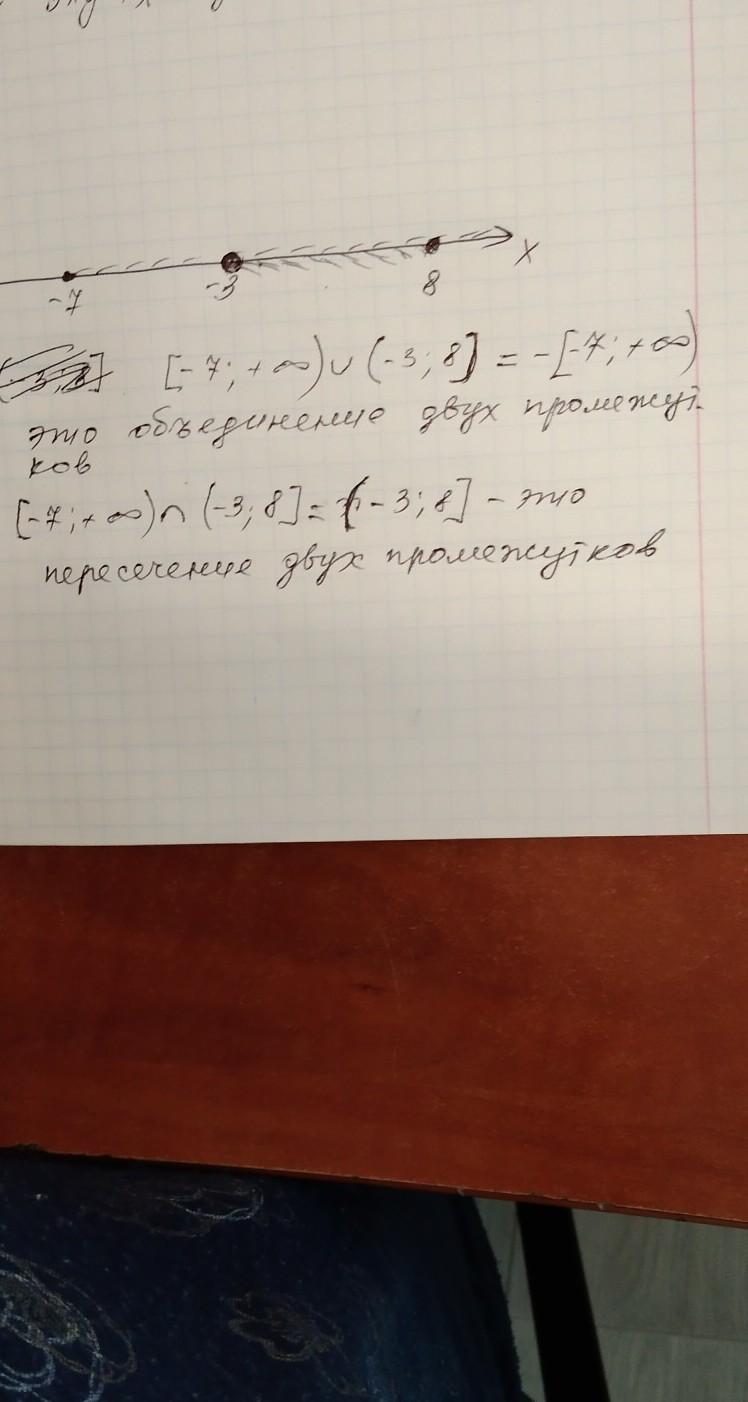 x
-7 -3 8
[-7; +∞) ∪ (-3; 8] = -[-7; +∞)
это объединение двух промежут-
ков
[-7; +∞) ∩ (-3; 8] = (-3; 8] - это
пересечение двух промежутков